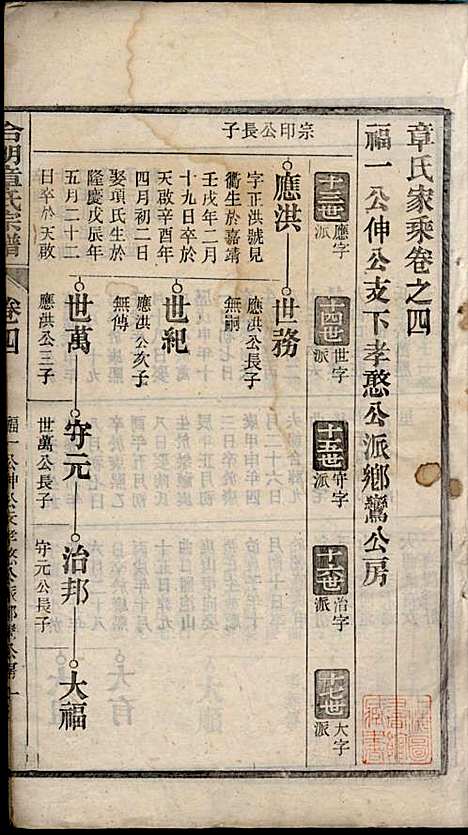 章氏家乘卷之四
福一公伸公支下孝憨公派鄉鸞公房
十三世 應字派
十四世 世字派
十五世 守字派
十六世 治字派
十七世 大字派
宗印公長子
應洪
字正洪號見
衢生於嘉靖
壬戌年二月
十九日卒於
天啟辛酉年
四月初二日
娶項氏生於
隆慶戊辰年
五月二十二
日卒於天啟
世務
應洪公長子
無嗣
世紀
應洪公次子
無傳
世萬
應洪公三子
守元
世萬公長子
治邦
守元公長子
大福
合朋章氏宗譜
卷四
福一公伸公支孝憨公派鄉鸞公房 一